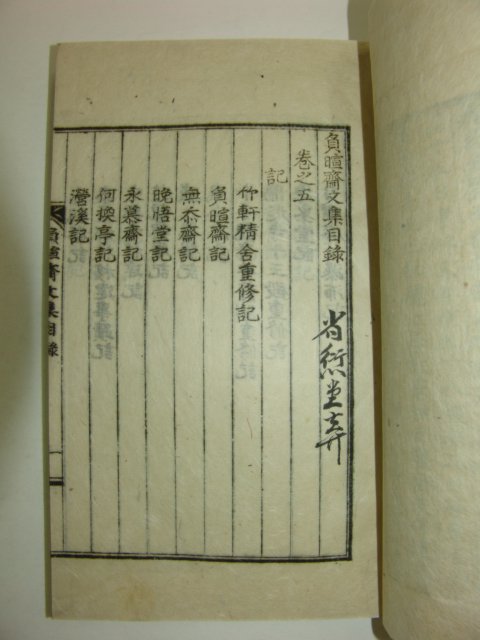 負暄齋文集目錄
卷之五
記
竹軒精舍重修記
負暄齋記
無忝齋記
晩悟堂記
永慕齋記
何換亭記
瀯溪記
負暄齋文集目錄